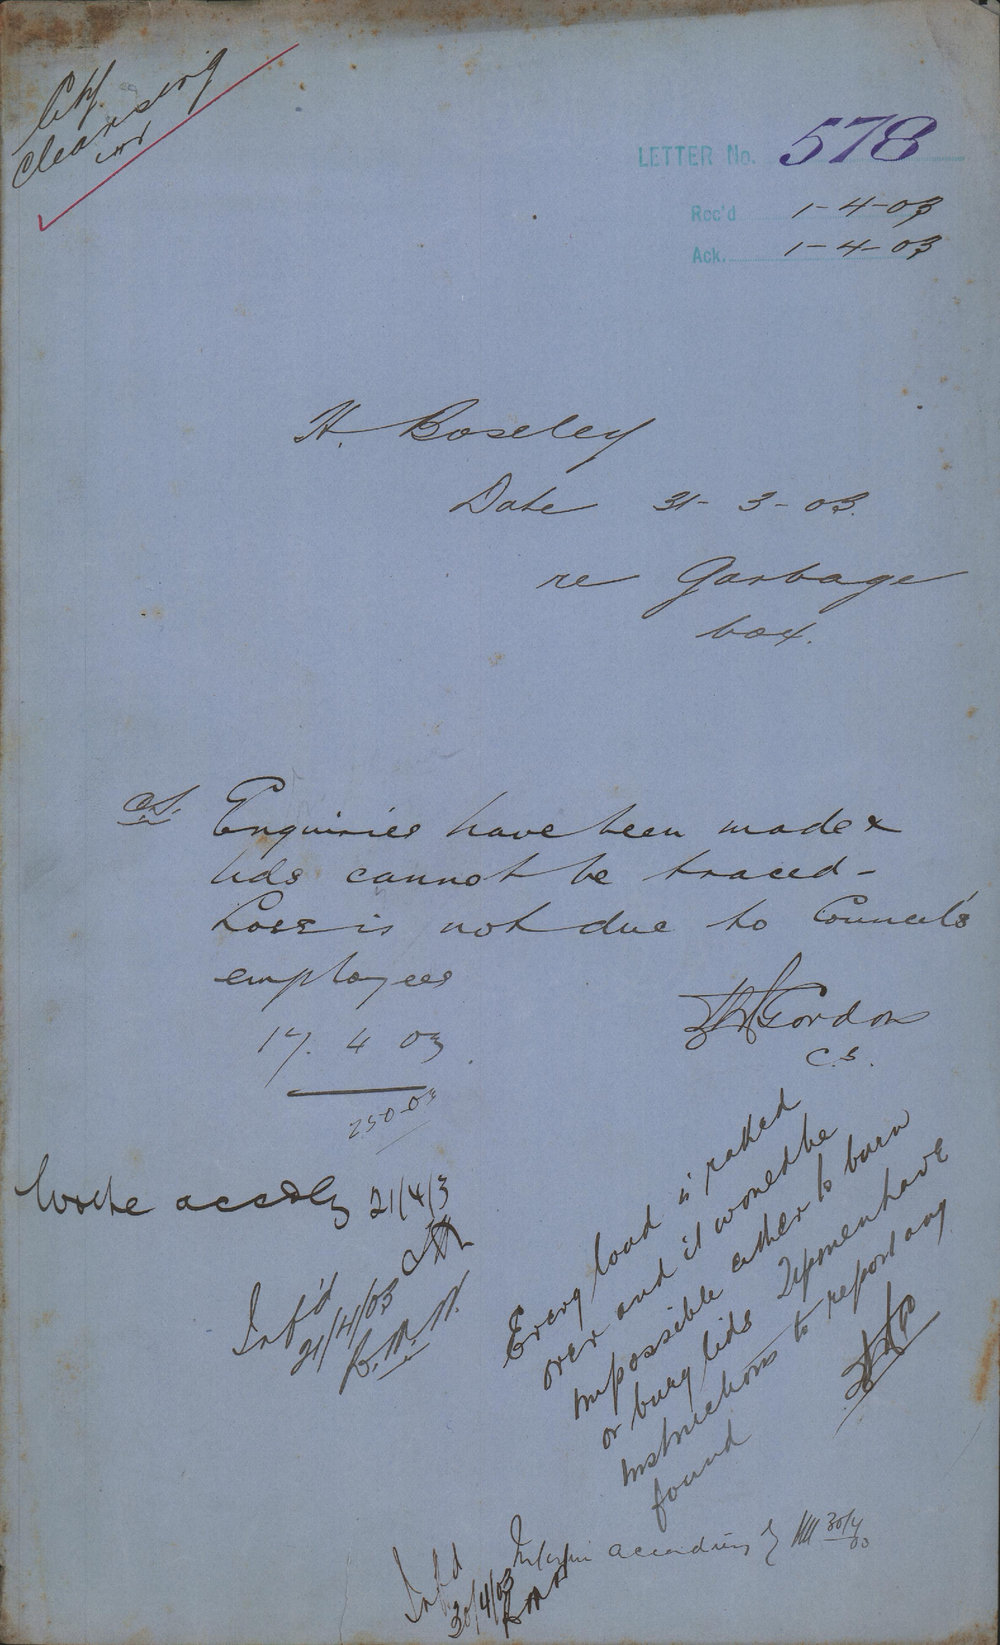 City
Cleansing
LETTER No. 578
Rec'd 1-4-03
Ack. 1-4-03
H. Boseley
Date 31-3-03.
re Garbage
box.
Enquiries have been made &
lids cannot be traced -
Loss is not due to Council's
employees
Gordon
C.S.
17. 4 03
250-03
Wrote accdly 21/4/3
Inf'd
21/4/03
Every load is raked
over and it would be
impossible either to burn
or bury lids Tipmen have
instructions to report any
found
Inf'd
30/4/03
Inform accordingly 30/4/03